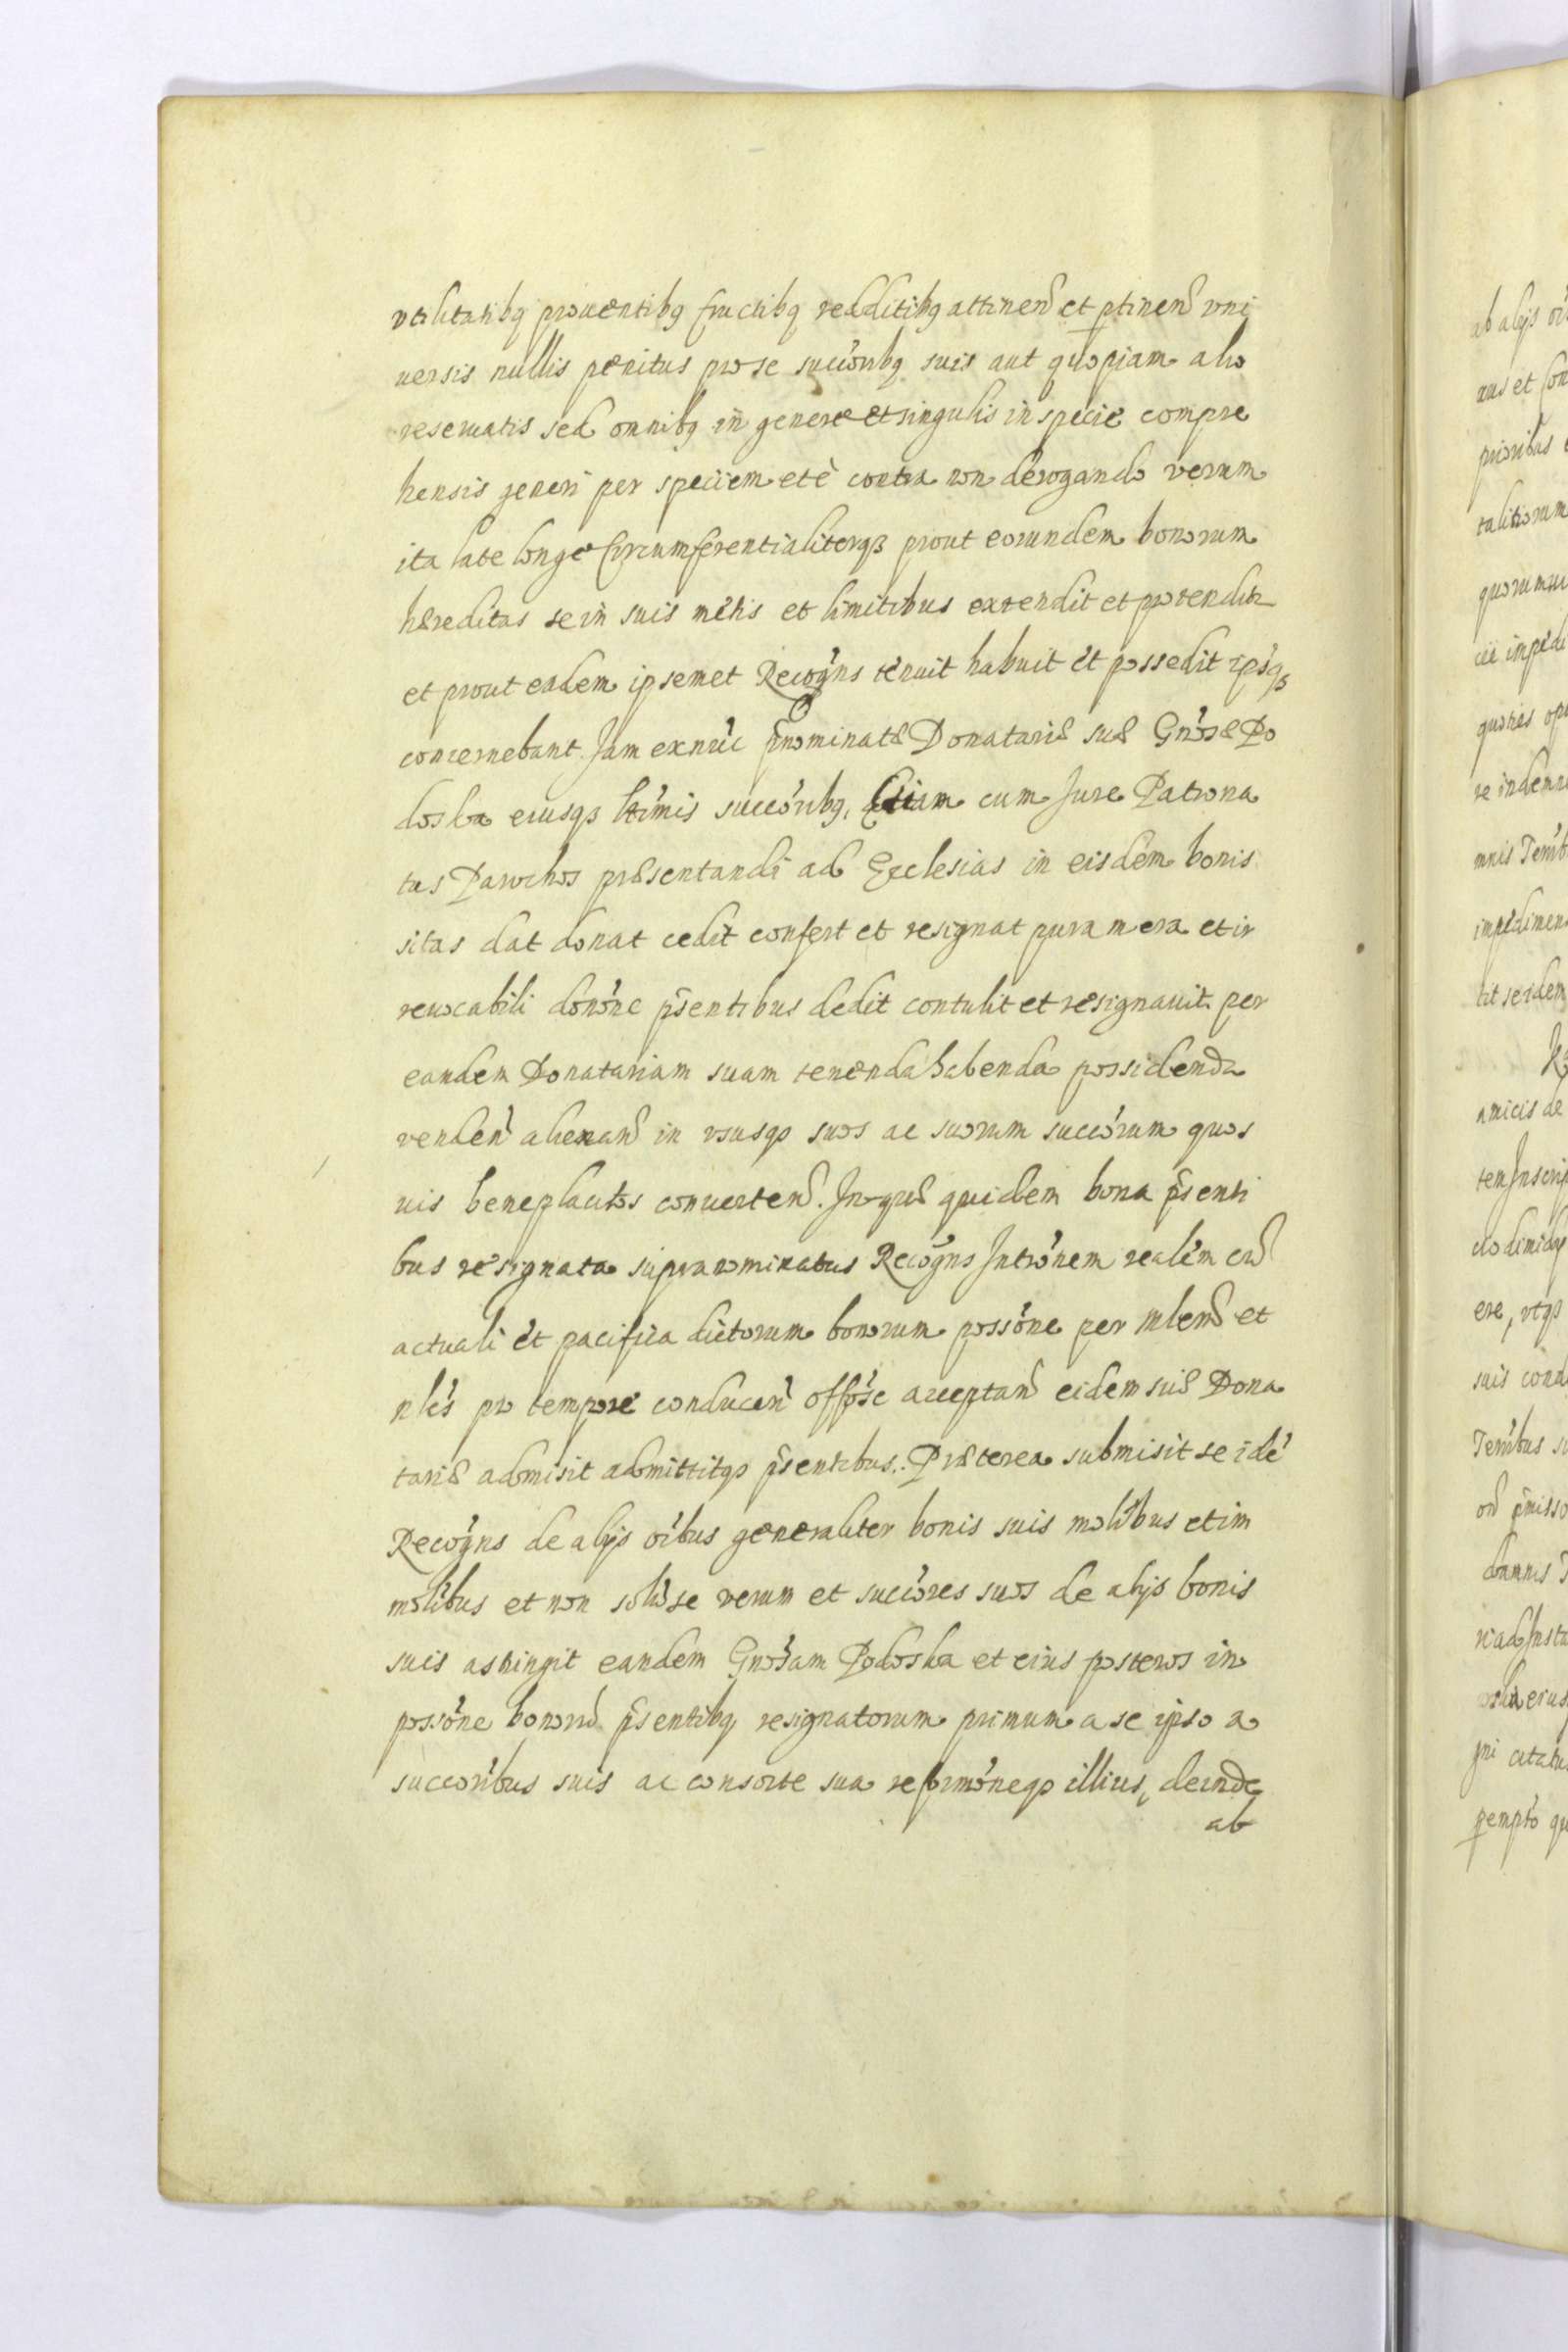 vtilitatibq prouentibq fructibq redditibq attinen et ptinen vni
uersis nullis penitus pro se succoribq suis aut quopiam alio
reseruatis sed omnibq in genere et singulis in specie compre
hensis generi per speciem et è contra non derogando verum
ita late longe circumferentialiterqз prout eorundem bonorum
hæreditas se in suis metis et limitibus extendit et protendit
et prout eadem ipsemet Recogns tenuit habuit et possedit ipsuqз
concernebant. Jam exnuc pnominatæ Donatariæ suæ Gnosæ Po
doska eiusqз ltimis succoribq, Etiam cum Jure Patrona
tus Parochos præsentandi ad Ecclesias in eisdem bonis
sitas dat donat cedit confert et resignat pura mera et ir
reuocabili donone psentibus dedit contulit et resignauit per
eandem Donatariam suam tenenda habenda possidenda
venden alienan in vsusqз suos ac suorum succorum quos
uis beneplacitos conuerten. In quæ quidem bona psenti
bus resignata supranominatus Recogns Intronem realem cu
actuali et pacifica dictorum bonorum possone per mlem et
nles pro tempore conducen offose acceptan eidem suæ Dona
tariæ admisit admittitqз psentibus. Præterea submisit se ide
Recogns de alijs oibus generaliter bonis suis molibus et im
molibus et non solu se verum et succores suos de alijs bonis
suis astringit eandem Gnosam Podoska et eius posteros in
possone bonoru psentibq resignatorum primum a se ipso a
succoribus suis ac consorte sua reformoneqз illius, deinde
ab
ab alijs
et
prioribus
talitiorum
impedi
quoties
impedimen
tit se idem
amicis de
ere, vtqз
suis
suis
damnis